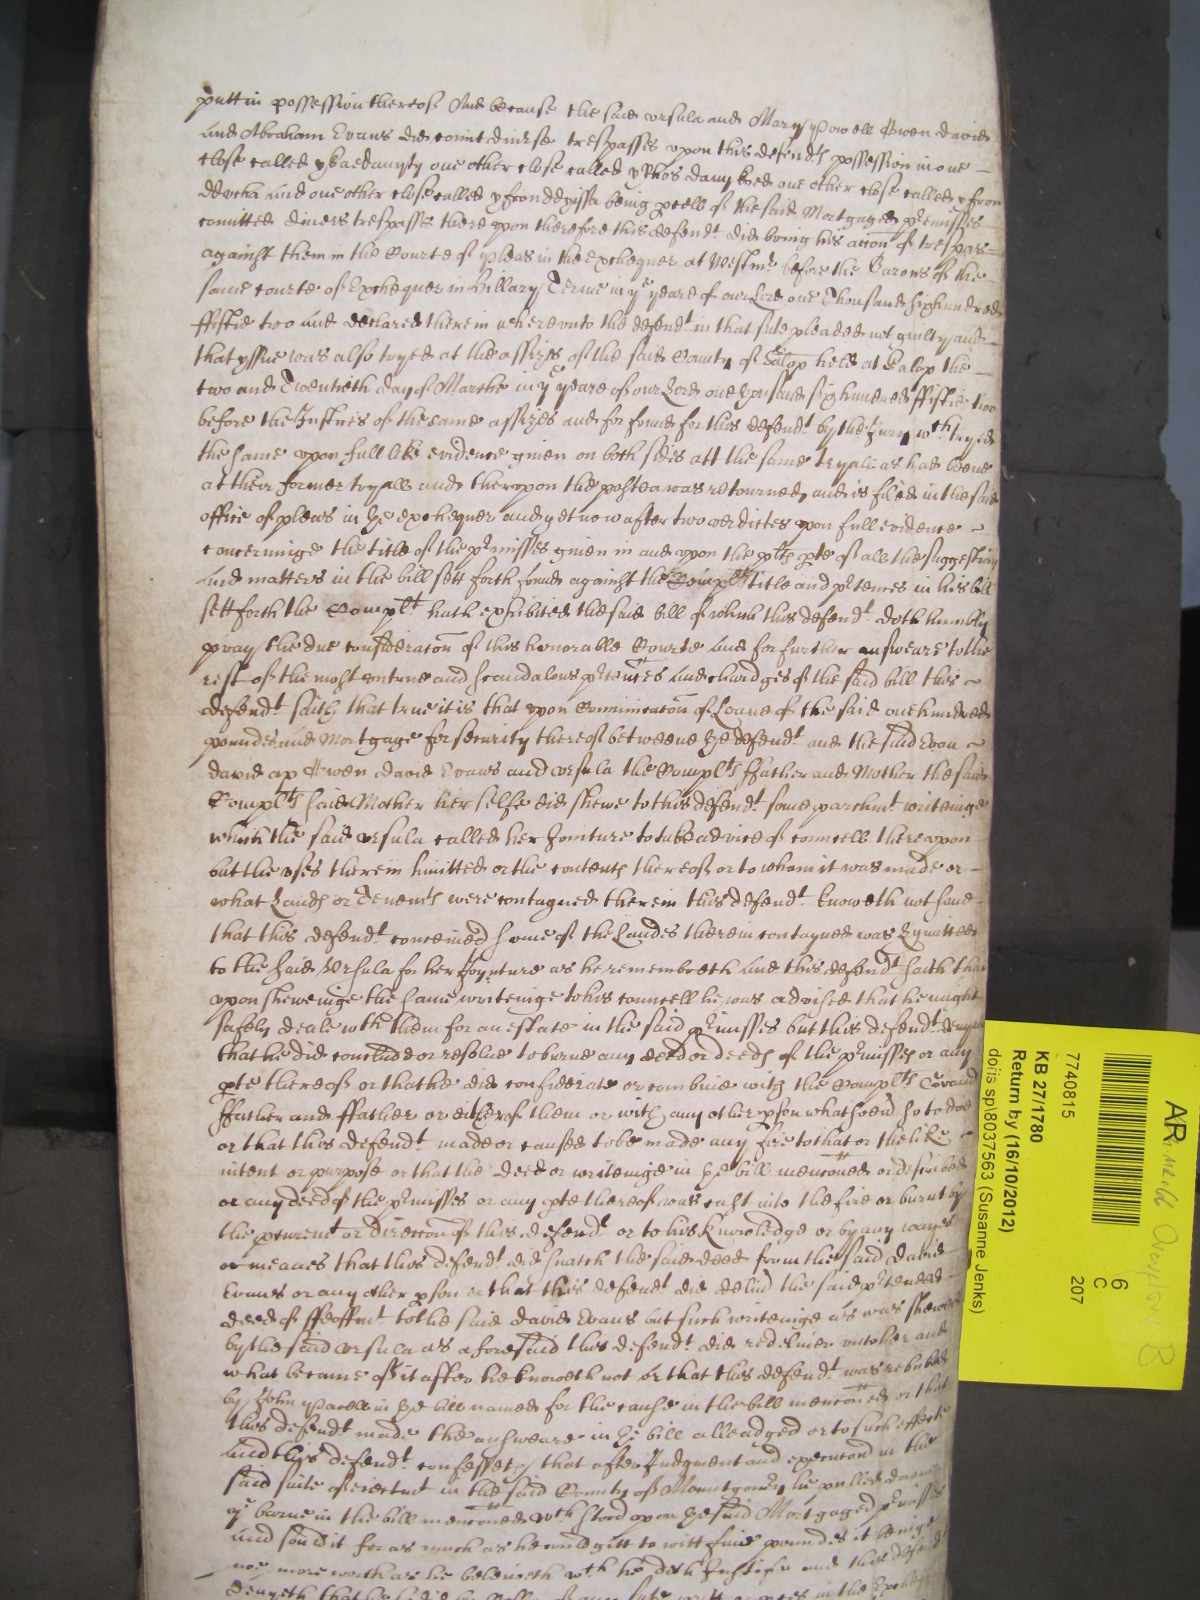 putt in possession thereof And because the said vrsula and Mary Powell Owen david
and Abraham Evans did comitt diuerse trespasses vpon this defendts possession in one
close called one other close called y Rhos one other close called y
and one other close called being pcell of the said Mortgaged pemisses
comitted diuers trespasses there vpon therefore this defendt did bring his accon of trespas
against them in the Courte of pleas in the exchequer at Westmr before the Barons of the
same courte of Exchequer in Hillary Terme in ye yeare of our Lord one Thousand six hundred
ffiftie two and declared therein wherevnto the defendt in that sute pleaded not guilty and
that yssue was also tryed at the assizes of the said County of Salop held at Salop the
two and Twentieth day of Marche in ye yeare of our Lord one thousand six hundred ffiftie two
before the Justices of the same assizes and for found for this defendt by the Jury wch tryed
the same vpon full like evidence giuen on both sides att the same tryall as had beene
at their former tryall and therevpon the postea was retourned and is filed in the said
office of pleas in the exchequer and yet now after two verdictes vpon full evidence
concerninge the title of the pemisses giuen in and vpon the plts pte of all the suggestions
and matters in the bill sett forth found against the Complts title and ptences in his bill
sett forth the Complt hath exhibited the said bill of which this defendt doth humbly
pray the due consideracon of this honorable Courte And for further answeare to the
rest of the most vntrue and scandalous ptences and chardges of the said bill this
defendt saith that true it is that vpon Comunicacon of Loane of the said one hundred
poundes and Mortgage for security thereof betweene the defendt and the said Evan
david ap Owen david Evans and vrsula the Complts ffather and Mother the said
Complts said Mother her selfe did shewe to this defendt some parchmt writeinge
which the said vrsula called her Jointure to take advice of councell therevpon
but the vses therein limitted or the contents thereof or to whom it was made or
what Lands or Tenemts were contayned therein this defendt knoweth not saue
that this defendt conceiued some of the landes therein contayned was Lymitted
to the said Vrsula for her Joynture as he remembreth And this defendt saith that
vpon sheweinge the same writeinge to his councell he was advised that he might
safely deale wth them for an estate in the said pemisses but this defendt denyeth
that he did conclude or resolue to burne any deed or deeds of the pemisses or any
pte thereof or that he did confiderate or combine with the Complts Grand
ffather and ffather or either of them or with any other pson whatsoeud so to doe
or that this defendt made or caused to be made any fire to that or the like
intent or purpose or that the deed or writeinge in the bill menconed or described
or any deed of the pemisses or any pte thereof was cast into the fire or burnt by
the or direccon of this defendt or to his knowledge or by any wayes
or meanes that this defendt did snatch the said deed from the said David
Evans or any other pson or that this defendt did deliud the said ptended
deed of ffeoffmt to the said david Evans but such writeinge as was shewed
by the said vrsula as aforesaid this defendt did redeliuer vnto her and
what became of it after he knoweth not or that this defendt was rebuked
by John Powell in the bill named for the cause in the bill menconed or that
this defendt made the answeare in the bill alleadged or to such effecte
And this defendt confesseth that after Judgment and execucon in the
said suite of eiectmt in the said County of Mountgomry he pulled downe
ye barne in the bill menconed wch stood vpon the said Mortgaged pemisses
and sould it for as much as he could gitt to witt fiue poundes it beinge
noe more worth as he beleiueth wch he doth Justifie and this defendt
denyeth that he did
7740815
KB 27/1780
Return by (16/10/2012)
doiis sp\8037563 (Susanne Jenks)
6
C
207
AR